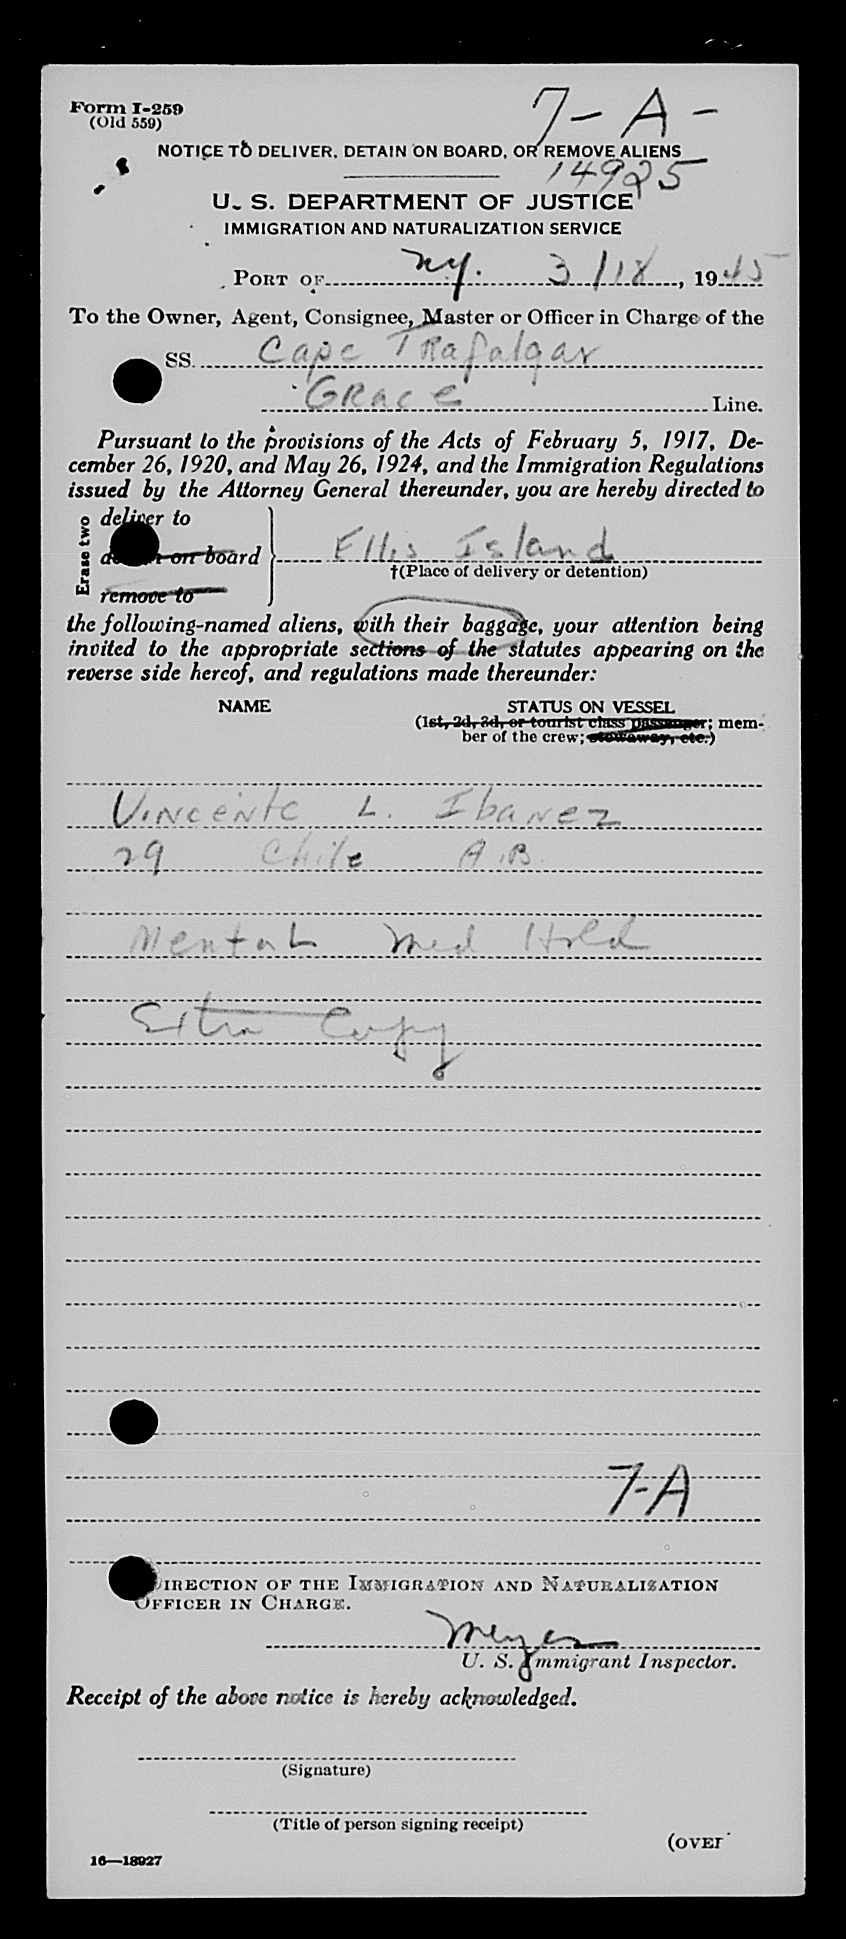 Form I-259
(Old 559)
7-A-
NOTICE TO DELIVER, DETAIN ON BOARD, OR REMOVE ALIENS
14925
U. S. DEPARTMENT OF JUSTICE
IMMIGRATION AND NATURALIZATION SERVICE
PORT OF NY. 3/18, 1945
To the Owner, Agent, Consignee, Master or Officer in Charge of the
SS. Cape Trafalgar
Grace Line.
Pursuant to the provisions of the Acts of February 5, 1917, De-
cember 26, 1920, and May 26, 1924, and the Immigration Regulations
issued by the Attorney General thereunder, you are hereby directed to
Erase two
deliver to
on board
remove to
Ellis Island
†(Place of delivery or detention)
the following-named aliens, with their baggage, your attention being
invited to the appropriate sections of the statutes appearing on the
reverse side hereof, and regulations made thereunder:
NAME STATUS ON VESSEL
(1st, 2d, 3d, or tourist class passenger; mem-
ber of the crew; stowaway, etc.)
Vincente L. Ibanez
29 Chile A.B.
Mental Med Hold
Extra Copy
7-A
DIRECTION OF THE IMMIGRATION AND NATURALIZATION
OFFICER IN CHARGE.
Meyer
U. S. Immigrant Inspector.
Receipt of the above notice is hereby acknowledged.
(Signature)
(Title of person signing receipt)
(OVER
16—18927